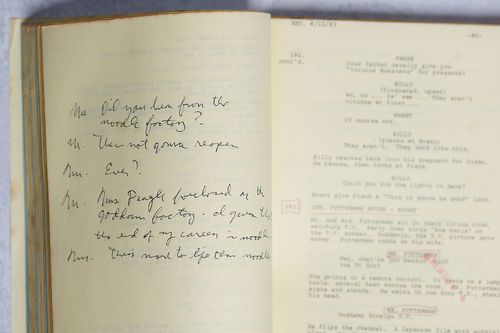 Mrs. Did you hear from the
noodle factory?
Mr. They're not gonna reopen
Mrs. Ever?
Mr. Mrs Deagle foreclosed on the
goddamn factory. I guess
the end of my career in noodles.
Mrs. There's more to life than noodles
REV. 4/11/83
-85-
cont'd.
FRANK
Your father usually give you
"vicious monsters" for presents?
BILLY
(flustered, upset)
No, no ... ya' see ... They aren't
vicious at first ...
BRENT
Of course not.
BILLY
(glares at Brent)
They aren't. They look like this.
Billy reaches back into his knapsack for Gizmo.
He pauses, then looks at Frank.
BILLY
Could you dim the lights in here?
Brent give Frank a "This is gonna be good" look.
INT. FUTTERMAN HOUSE - NIGHT
Mr. and Mrs. Futterman sit in their living room,
watching T.V. Perry Como sings "Ave Maria" on
the T.V. screen. Suddenly, the T.V. picture gets
snowy. Futterman turns to his wife.
MR. FUTTERMAN
Hey, what're you messin' with
the TV for?
She points to a remote control. It rests on a lamp
table, several feet across the room. Mr. Futterman
sighs and stands. He walks to the Sony set, shaking
his head.
MR. FUTTERMAN
Goddamn foreign T.V.
He flips the channel. A Japanese film